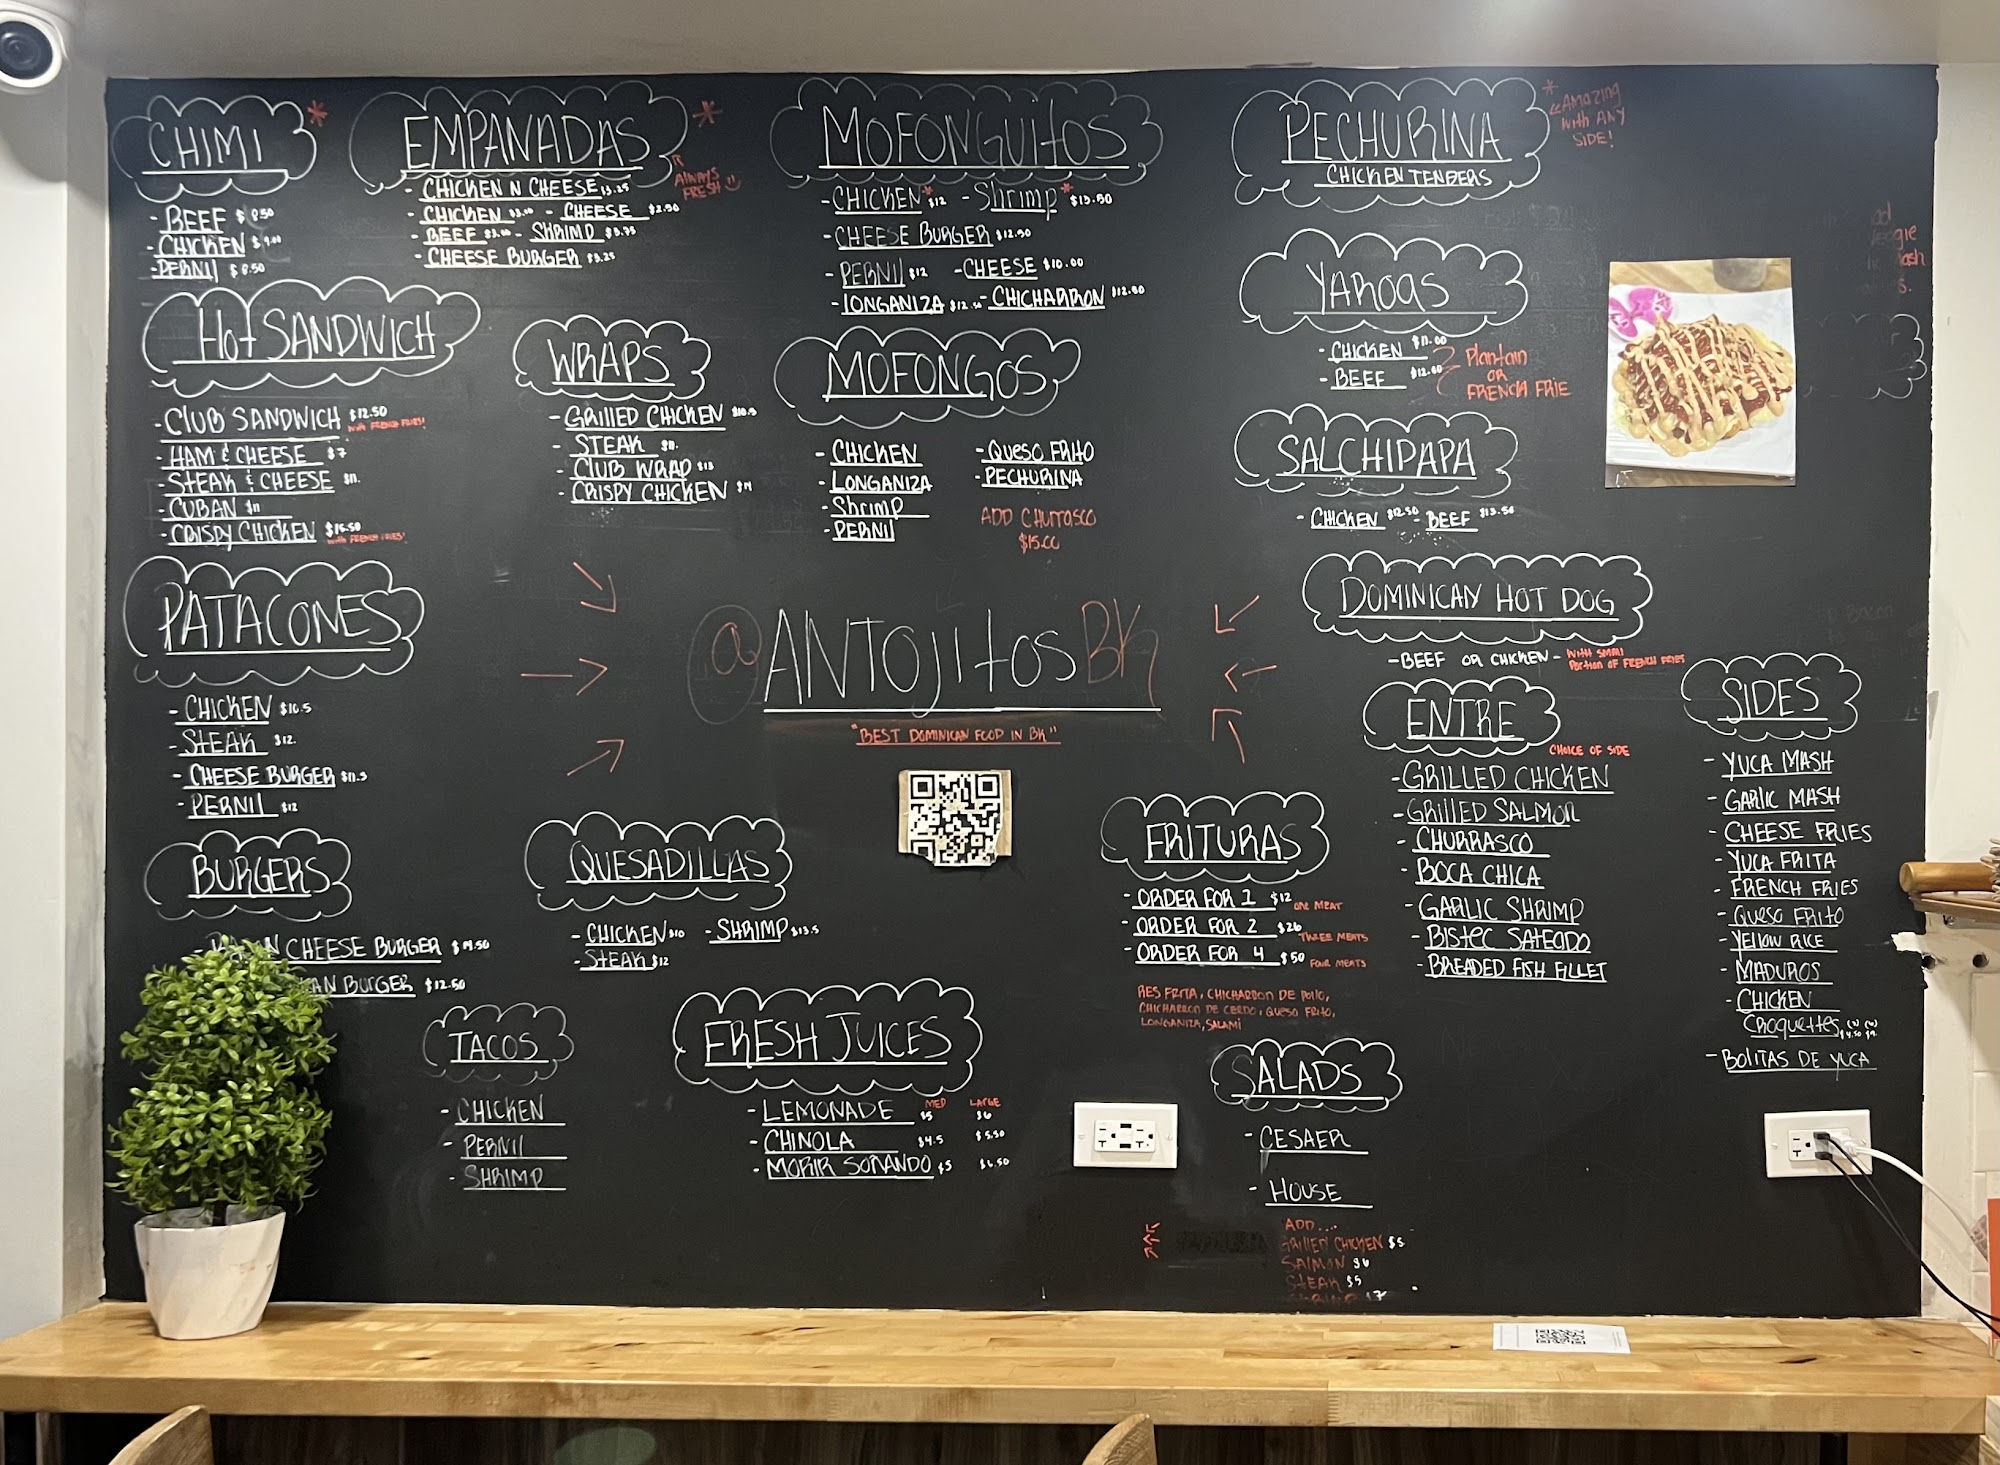 CHIMI *
- BEEF $8.50
- CHICKEN $9.00
- PERNIL $8.50
EMPANADAS *
ALWAYS
FRESH
- CHICKEN N CHEESE $3.25
- CHICKEN $3.00 - CHEESE $2.50
- BEEF $3.00 - SHRIMP $3.75
- CHEESE BURGER $3.25
MOFONGUITOS
- CHICKEN* $12 - Shrimp* $13.50
- CHEESE BURGER $12.50
- PERNIL $12 - CHEESE $10.00
- LONGANIZA $12.50 - CHICHARRON $12.50
PECHURINA
CHICKEN TENDERS
* AMAZING
With ANY
SIDE!
YAROAS
- CHICKEN $11.00
- BEEF $12.00
Plantain
OR
FRENCH FRIE
Hot SANDWICH
- CLUB SANDWICH $12.50
With FRENCH FRIES!
- HAM & CHEESE $7
- STEAK & CHEESE $11.
- CUBAN $11
- CRISPY CHICKEN $15.50
With FRENCH FRIES!
WRAPS
- GRILLED CHICKEN $10.5
- STEAK $11.
- CLUB WRAP $13
- CRISPY CHICKEN $14
MOFONGOS
- CHICKEN - QUESO FRITO
- LONGANIZA - PECHURINA
- Shrimp
- PERNIL
ADD CHURRASCO
$15.00
SALCHIPAPA
- CHICKEN $12.50 - BEEF $13.50
PATACONES
- CHICKEN $10.5
- STEAK $12.
- CHEESE BURGER $11.5
- PERNIL $12
@ANTOJITOSBK
"BEST DOMINICAN FOOD IN BK"
DOMINICAN HOT DOG
- BEEF OR CHICKEN -
WITH SMALL
PORTION OF FRENCH FRIES
ENTRE
CHOICE OF SIDE
- GRILLED CHICKEN
- GRILLED SALMON
- CHURRASCO
- BOCA CHICA
- GARLIC SHRIMP
- BISTEC SALTEADO
- BREADED FISH FILLET
SIDES
- YUCA MASH
- GARLIC MASH
- CHEESE FRIES
- YUCA FRITA
- FRENCH FRIES
- QUESO FRITO
- YELLOW RICE
- MADUROS
- CHICKEN
CROQUETTES
- BOLITAS DE YUCA
BURGERS
CHEESE BURGER $14.50
BURGER $12.50
QUESADILLAS
- CHICKEN $10 - SHRIMP $13.5
- STEAK $12
FRITURAS
- ORDER FOR 1 $12 ONE MEAT
- ORDER FOR 2 $26 THREE MEATS
- ORDER FOR 4 $50 FOUR MEATS
RES FRITA, CHICHARRON DE POLLO,
CHICHARRON DE CERDO, QUESO FRITO,
LONGANIZA, SALAMI
TACOS
- CHICKEN
- PERNIL
- SHRIMP
FRESH JUICES
MED LARGE
- LEMONADE $5 $6
- CHINOLA $4.5 $5.50
- MORIR SOÑANDO $5 $6.50
SALADS
- CESAER
- HOUSE
ADD....
GRILLED CHICKEN $5
SALMON $6
STEAK $5
SHRIMP $7